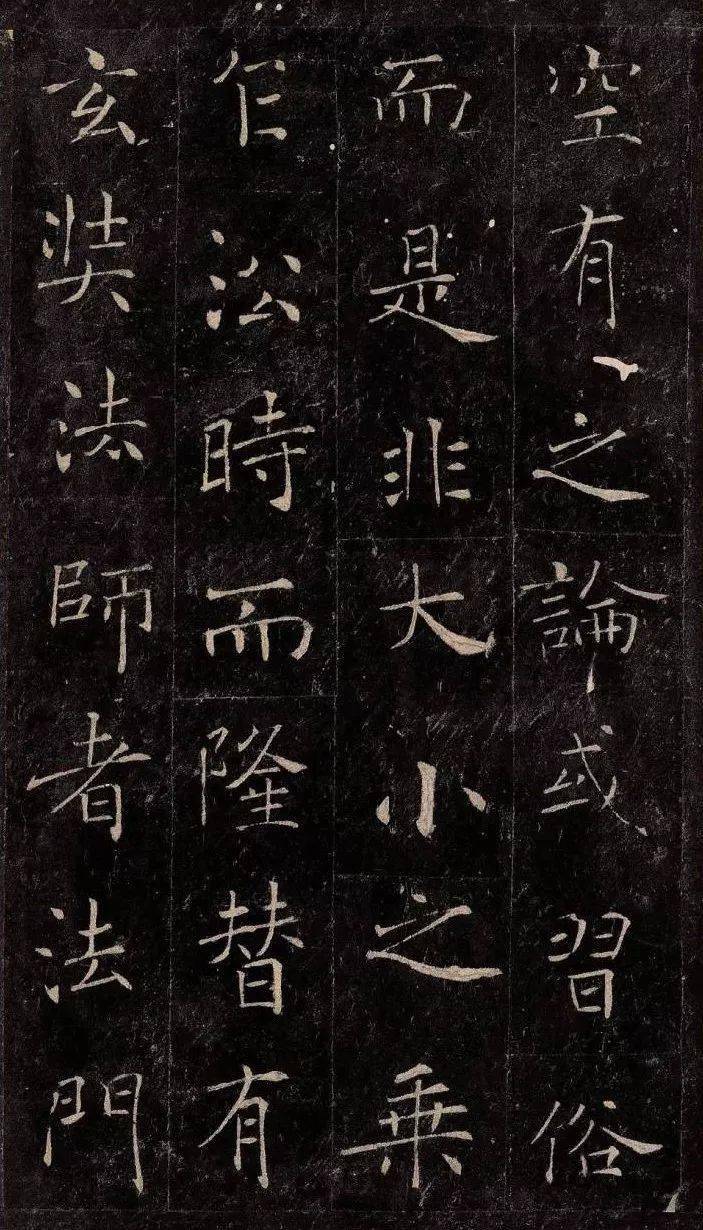 空有之論或習俗
而是非大小之乘
乍㳂時而隆替有
玄奘法師者法門